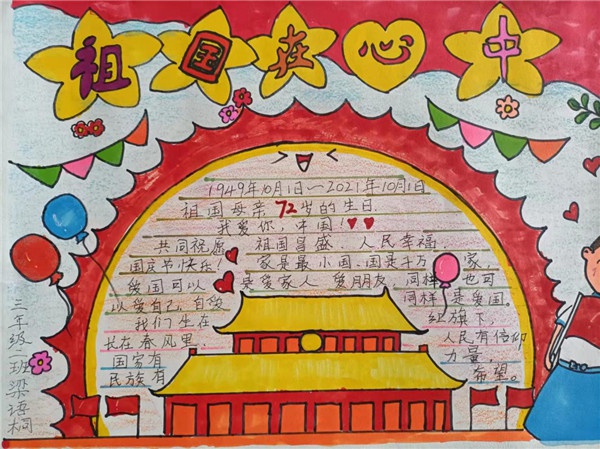 祖国在心中
1949年10月1日～2021年10月1日
祖国母亲72岁的生日
我爱你，中国！
共同祝愿 祖国昌盛、人民幸福，
国庆节快乐！ 家是最小国、国是千万 家，
爱国可以 是爱家人 爱朋友，同样 也可
以爱自己，自 同样 是爱国。
我们生在 红旗下，
长在春风里， 人民有信仰
国家有 力量，
民族有 希望。
三年级二班梁语桐